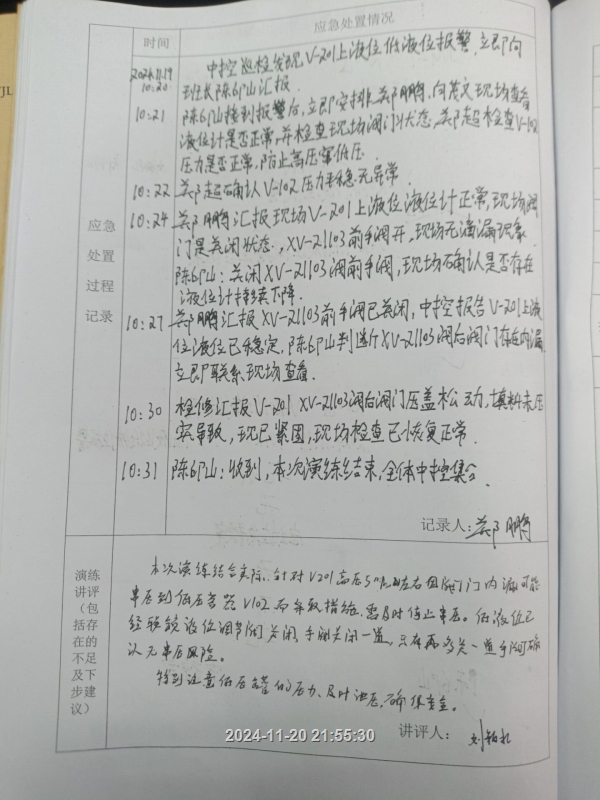 应急处置情况
时间
应急
处置
过程
记录
2024.11.19
10:20
中控巡检发现V-201上液位低液位报警,立即向
班长陈6山汇报.
10:21 陈6山接到报警后,立即安排郑鹏、向茂文现场查看
液位计是否正常,并检查现场阀门状态,郑超检查V-102
压力是否正常,防止高压窜低压.
10:22 郑超确认V-102压力平稳无异常.
10:24 郑鹏汇报现场V-201上液位液位计正常,现场阀
门是关闭状态,XV-21103前手阀开,现场无滴漏现象.
陈6山:关闭XV-21103阀前手阀,现场确认是否存在
液位计持续下降.
10:27 郑鹏汇报XV-21103前手阀已关闭,中控报告V-201上液
位液位已稳定,陈6山判断XV-21103阀后阀门存在内漏
立即联系现场查看.
10:30 检修汇报V-201 XV-21103阀后阀门压盖松动,填料未压
实导致,现已紧固,现场检查已恢复正常.
10:31 陈6山:收到,本次演练结束,全体中控集合.
记录人:郑鹏
演练
讲评
(包
括存
在的
不足
及下
步建
议)
本次演练结合实际,针对V201高压 左右 阀门内漏可能
串压到低压容器V102而采取措施,需及时停止串压。低液位已
经联锁液位调节阀关闭,手阀关闭一道,只有再多关一道手阀可确
认无串压风险。
特别注意低压罐的压力、及时泄压,确保安全。
讲评人:
2024-11-20 21:55:30